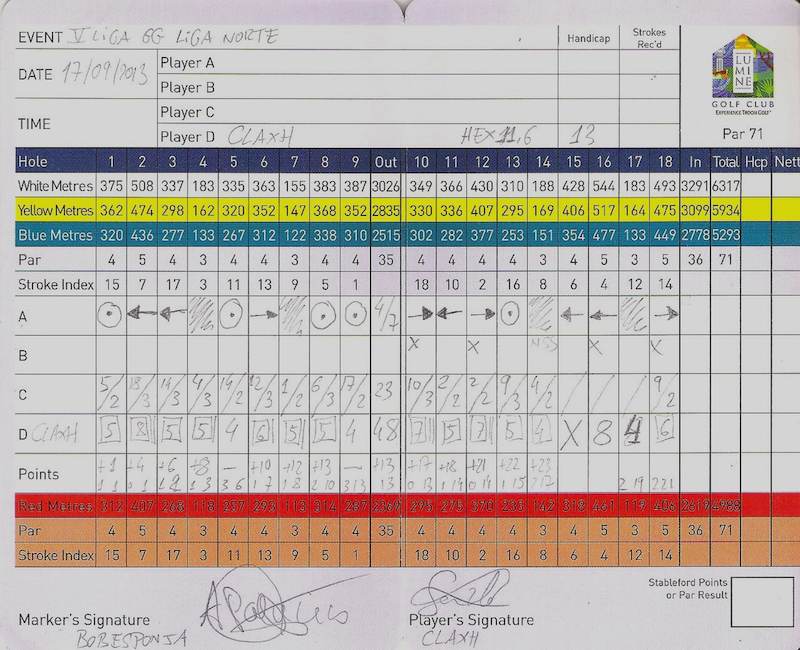 EVENT V LIGA GG LIGA NORTE Handicap Strokes Rec'd
DATE 17/09/2013 Player A
Player B
TIME Player C
Player D CLAXH HEX 11,6 13
LUMINE
GOLF CLUB
EXPERIENCE TROON GOLF
Par 71
Hole 1 2 3 4 5 6 7 8 9 Out 10 11 12 13 14 15 16 17 18 In Total Hcp Nett
White Metres 375 508 337 183 335 363 155 383 387 3026 349 366 430 310 188 428 544 183 493 3291 6317
Yellow Metres 362 474 298 162 320 352 147 368 352 2835 330 336 407 295 169 406 517 164 475 3099 5934
Blue Metres 320 436 277 133 267 312 122 338 310 2515 302 282 377 253 151 354 477 133 449 2778 5293
Par 4 5 4 3 4 4 3 4 4 35 4 4 4 4 3 4 5 3 5 36 71
Stroke Index 15 7 17 3 11 13 9 5 1 18 10 2 16 8 6 4 12 14
A 4/7
B X X X X
C 5/2 18/3 14/3 4/3 14/2 12/3 1/2 6/3 17/2 23 10/3 2/2 2/2 9/3 4/2 / / / 9/2
D CLAXH 5 8 5 5 4 6 5 5 4 48 7 5 7 5 4 X 8 4 6
Points +1 +4 +6 +8 – +10 +12 +13 – +13 +17 +18 +21 +22 +23
1 1 0 1 1 2 1 3 3 6 1 7 1 8 2 10 3 13 13 0 13 1 14 0 14 1 15 2 17 2 19 2 21
Red Metres 312 407 268 118 257 293 113 314 287 2369 295 275 370 233 142 318 461 119 406 2619 4988
Par 4 5 4 3 4 4 3 4 4 35 4 4 4 4 3 4 5 3 5 36 71
Stroke Index 15 7 17 3 11 13 9 5 1 18 10 2 16 8 6 4 12 14
Stableford Points or Par Result
Marker's Signature Player's Signature
BOBESPONJA CLAXH